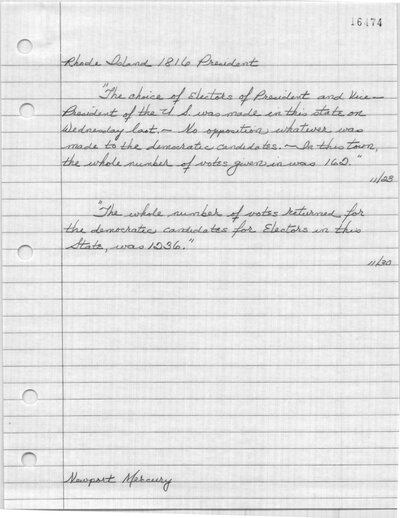 16474
Rhode Island 1816 President
"The choice of Electors of President and Vice-
President of the U S. was made in this state on
Wednesday last. – No opposition whatever was
made to the democratic candidates. – In this town,
the whole number of votes given in was 162."
11/23
"The whole number of votes returned for
the democratic candidates for Electors in this
State, was 1236."
11/30
Newport Mercury